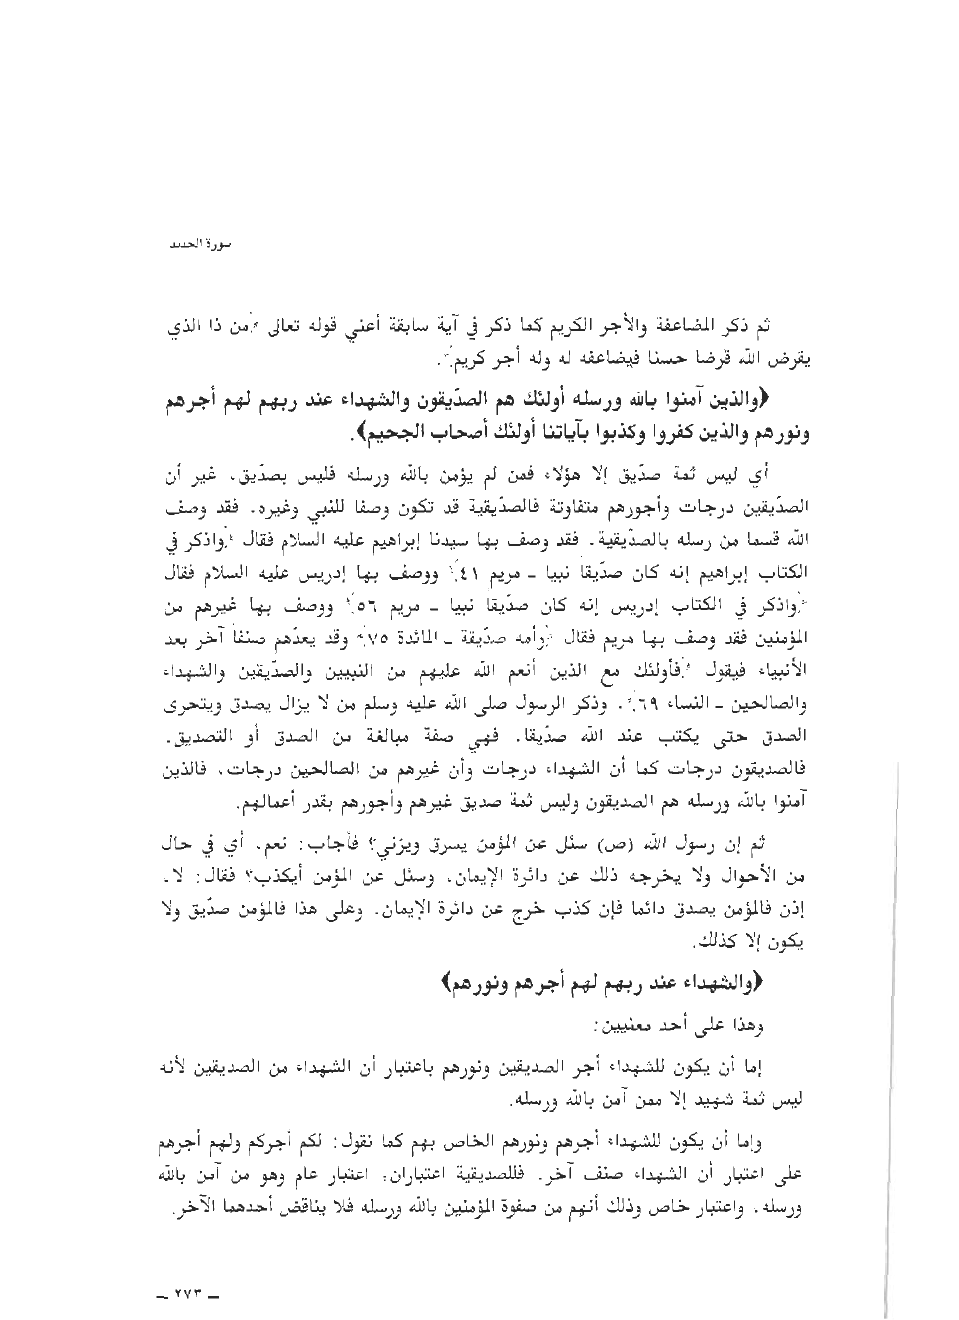 سورة الحديد
ثم ذكر المضاعفة والأجر الكريم كما ذكر في آية سابقة أعني قوله تعالى ﴿من ذا الذي
يقرض الله قرضا حسنا فيضاعفه له وله أجر كريم﴾.
﴿والذين آمنوا بالله ورسله أولئك هم الصدّيقون والشهداء عند ربهم لهم أجرهم
ونورهم والذين كفروا وكذبوا بآياتنا أولئك أصحاب الجحيم﴾.
أي ليس ثمة صدّيق إلا هؤلاء فمن لم يؤمن بالله ورسله فليس بصدّيق، غير أن
الصدّيقين درجات وأجورهم متفاوتة فالصدّيقية قد تكون وصفا للنبي وغيره. فقد وصف
الله قسما من رسله بالصدّيقية. فقد وصف بها سيدنا إبراهيم عليه السلام فقال ﴿واذكر في
الكتاب إبراهيم إنه كان صدّيقاً نبيا ـ مريم ٤١﴾ ووصف بها إدريس عليه السلام فقال
﴿واذكر في الكتاب إدريس إنه كان صدّيقا نبيا ـ مريم ٥٦﴾ ووصف بها غيرهم من
المؤمنين فقد وصف بها مريم فقال ﴿وأمه صدّيقة ـ المائدة ٧٥﴾ وقد يعدّهم صنفاً آخر بعد
الأنبياء فيقول ﴿فأولئك مع الذين أنعم الله عليهم من النبيين والصدّيقين والشهداء
والصالحين ـ النساء ٦٩﴾. وذكر الرسول صلى الله عليه وسلم من لا يزال يصدق ويتحرى
الصدق حتى يكتب عند الله صدّيقا. فهي صفة مبالغة من الصدق أو التصديق.
فالصديقون درجات كما أن الشهداء درجات وأن غيرهم من الصالحين درجات، فالذين
آمنوا بالله ورسله هم الصديقون وليس ثمة صديق غيرهم وأجورهم بقدر أعمالهم.
ثم إن رسول الله (ص) سئل عن المؤمن يسرق ويزني؟ فأجاب: نعم، أي في حال
من الأحوال ولا يخرجه ذلك عن دائرة الإيمان، وسئل عن المؤمن أيكذب؟ فقال: لا.
إذن فالمؤمن يصدق دائما فإن كذب خرج عن دائرة الإيمان. وعلى هذا فالمؤمن صدّيق ولا
يكون إلا كذلك.
﴿والشهداء عند ربهم لهم أجرهم ونورهم﴾
وهذا على أحد معنيين:
إما أن يكون للشهداء أجر الصديقين ونورهم باعتبار أن الشهداء من الصديقين لأنه
ليس ثمة شهيد إلا ممن آمن بالله ورسله.
وإما أن يكون للشهداء أجرهم ونورهم الخاص بهم كما نقول: لكم أجركم ولهم أجرهم
على اعتبار أن الشهداء صنف آخر. فللصديقية اعتباران: اعتبار عام وهو من آمن بالله
ورسله. واعتبار خاص وذلك أنهم من صفوة المؤمنين بالله ورسله فلا يناقض أحدهما الآخر.
ـ ٢٧٣ ـ